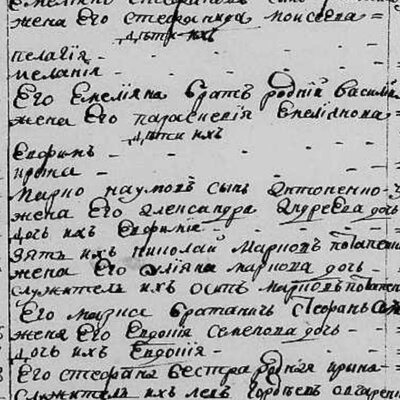 жена Его стефанида моисеева =
дѣти ихъ
пелагія - - - -
меланія - - - -
Его Емеліана братъ родній василій
жена Его параскевія Емеліянова
дѣти ихъ
Евфимъ - - - -
ирина - - - -
Марко наумовъ сынъ
жена Его Александра Андреева дочь
дочь ихъ Евфимія - - -
зять ихъ николай Марковъ
жена Его Уліяна маркова дочь
служитель ихъ осипъ марковъ
Его братаничъ
жена Его Евдокія Семенова дочь -
дочь ихъ Евдокія - - -
Его стефана сестра родная ирина -
служитель ихъ левъ